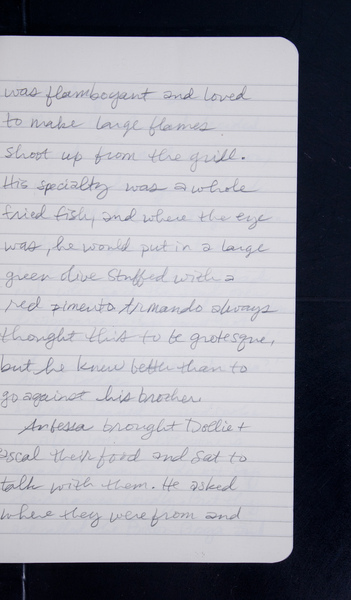 was flamboyant and loved
to make large flames
shoot up from the grill.
His specialty was a whole
fried fish, and where the eye
was, he would put in a large
green olive stuffed with a
red pimento. Armando always
thought this to be grotesque,
but he knew better than to
go against his brother.
Anbessa brought Dollie +
ascal their food and sat to
talk with them. He asked
where they were from and